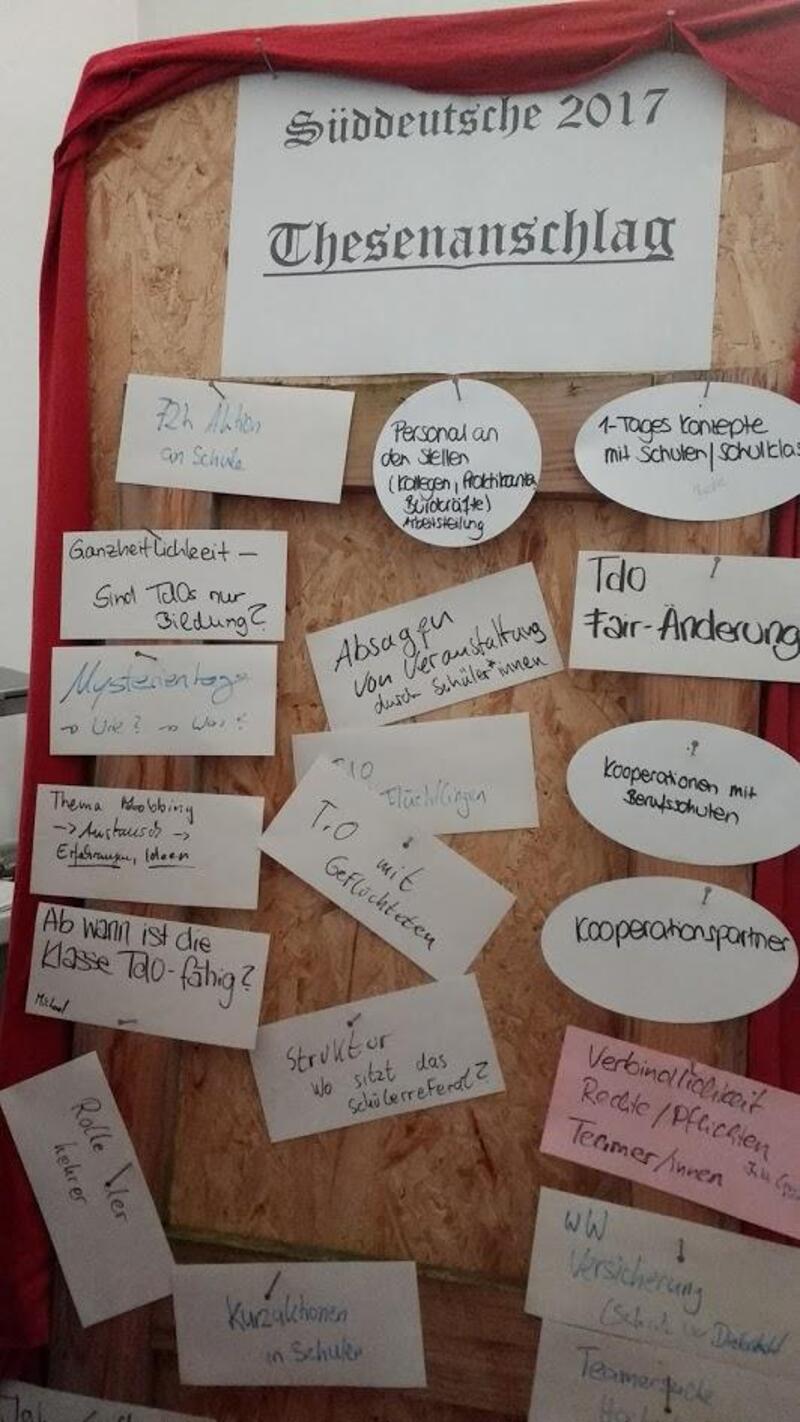 Süddeutsche 2017
Thesenanschlag
72h Aktion
an Schule
Personal an
den Stellen
(Kollegen, Praktikanten
Bürokräfte)
Arbeitsteilung
1-Tages Konzepte
mit Schulen/Schulklas
Ganzheitlichkeit –
Sind TdOs nur
Bildung?
Absagen
von Veranstaltung
durch Schüler*innen
TdO
Fair-Änderung
Mysterientage
→ Wie? → Was?
Flüchtlingen
Kooperationen mit
Berufsschulen
Thema Mobbing
-> Austausch ->
Erfahrungen, Ideen
TdO mit
Geflüchteten
Kooperationspartner
Ab wann ist die
Klasse TdO-fähig?
Michael
Struktur
Wo sitzt das
Schülerreferat?
Verbindlichkeit
Rechte/Pflichten
Teamer/innen
Rolle der
Lehrer
WW
Versicherung
Kurzaktionen
in Schulen
Teamersuche